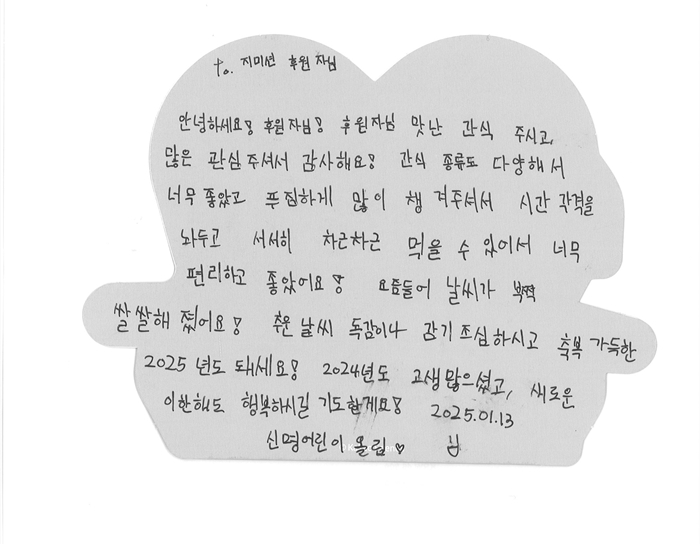 to. 지미션 후원자님
안녕하세요! 후원자님! 후원자님 맛난 간식 주시고,
많은 관심주셔서 감사해요! 간식 종류도 다양해서
너무 좋았고 푸짐하게 많이 챙겨주셔서 시간 각격을
놔두고 서서히 차근차근 먹을 수 있어서 너무
편리하고 좋았어요! 요즘들어 날씨가 부쩍
쌀쌀해 졌어요! 추운 날씨 독감이나 감기 조심하시고 축복 가득한
2025년도 돼세요! 2024년도 고생많으셨고, 새로운
이한해도 행복하시길 기도할게요! 2025.01.13
신명어린이 올림 ♡